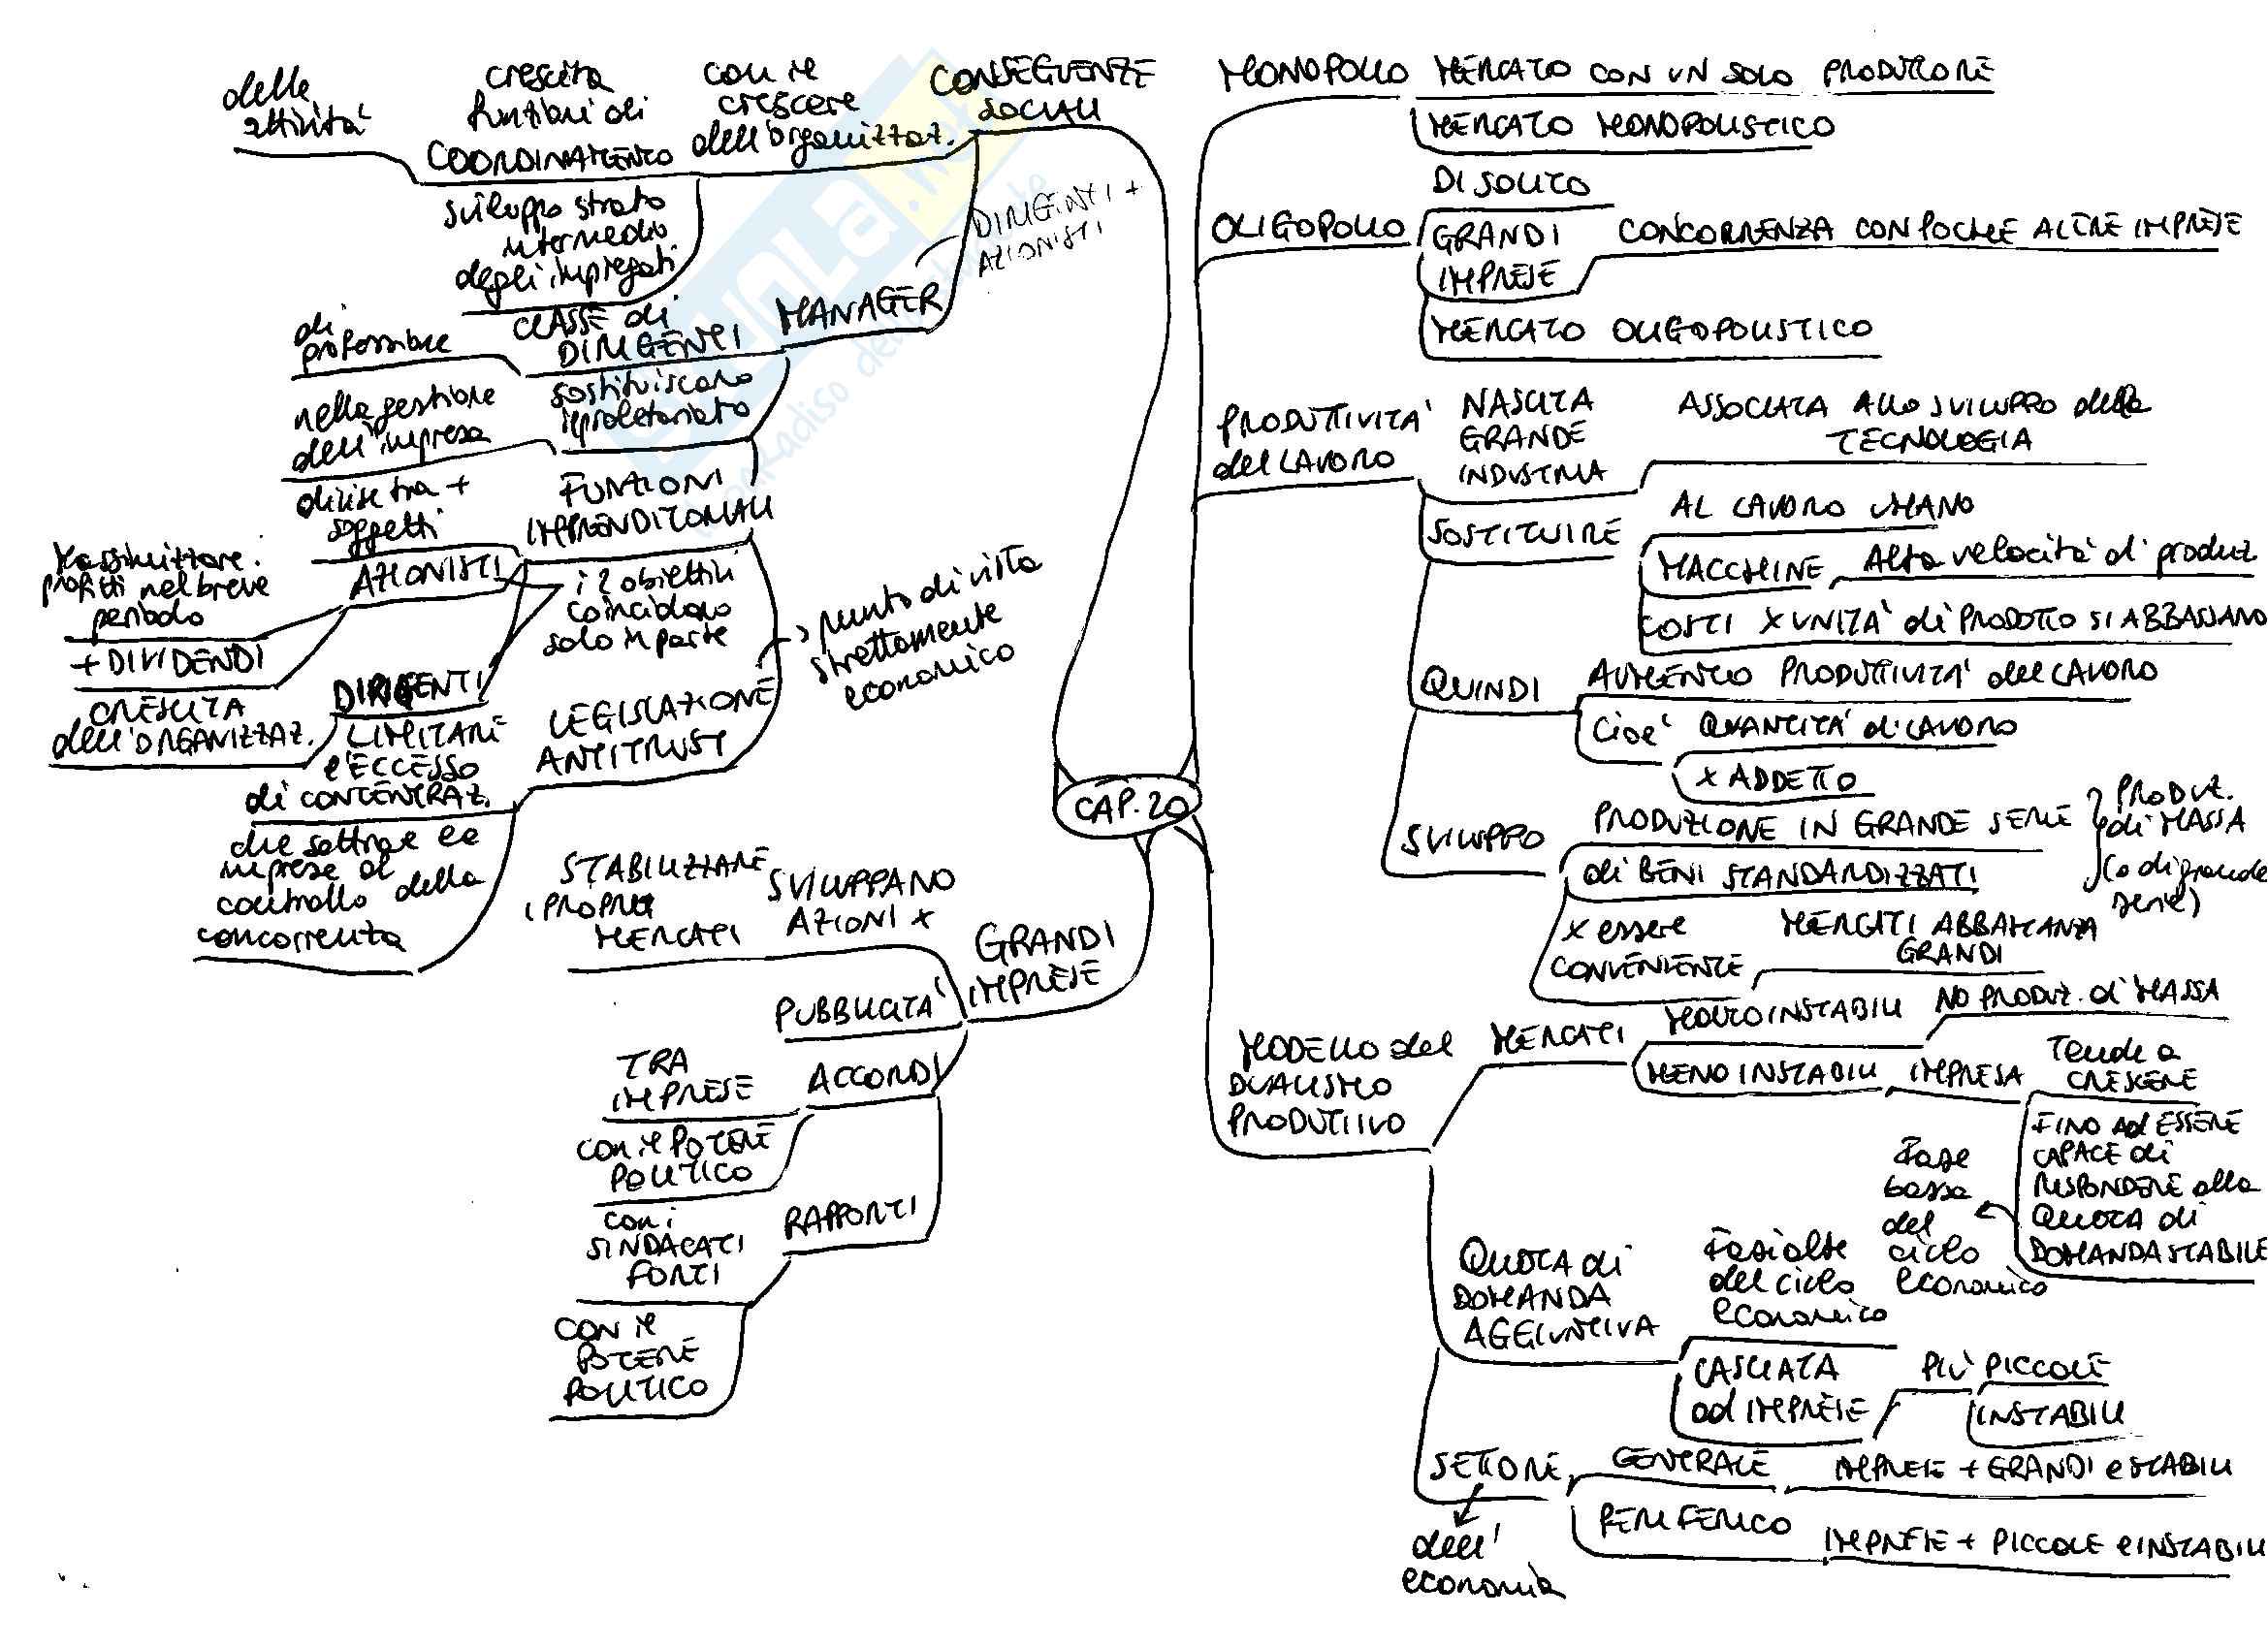 CAP. 20
MONOPOLIO
MERCATO CON UN SOLO PRODUTTORE
MERCATO MONOPOLISTICO
OLIGOPOLIO
DI SOLITO
GRANDI
IMPRESE
CONCORRENZA CON POCHE ALTRE IMPRESE
MERCATO OLIGOPOLISTICO
PRODUTTIVITA'
del LAVORO
NASCITA
GRANDE
INDUSTRIA
ASSOCIATA Allo SVILUPPO della
TECNOLOGIA
SOSTITUIRE
AL LAVORO UMANO
MACCHINE
Alta velocità di produz
COSTI X UNITA' di PRODOTTO SI ABBASSANO
QUINDI
AUMENTO PRODUTTIVITA' del LAVORO
Cioè QUANTITA' di LAVORO
X ADDETTO
SVILUPPO
PRODUZIONE IN GRANDE SERIE
di BENI STANDARDIZZATI
PRODUZ.
di MASSA
(o di grande
serie)
X essere
CONVENIENTE
MERCATI ABBASTANZA
GRANDI
MODELLO del
DUALISMO
PRODUTTIVO
MERCATI
MOLTO INSTABILI
NO PRODUZ. di MASSA
MENO INSTABILI
IMPRESA
Tende a
CRESCERE
FINO Ad ESSERE
CAPACE di
RISPONDERE alla
QUOTA di
DOMANDA STABILE
Fase
bassa
del
ciclo
economico
QUOTA di
DOMANDA
AGGIUNTIVA
Fasi alte
del ciclo
economico
LASCIATA
ad IMPRESE
PIU' PICCOLE
INSTABILI
SETTORE
dell'
economia
GENERALE
IMPRESE + GRANDI e STABILI
PERIFERICO
IMPRESE + PICCOLE e INSTABILI
CONSEGUENZE
SOCIALI
con il
crescere
dell'organizzaz.
crescita
funzioni di
COORDINAMENTO
delle
attività
sviluppo strato
intermedio
degli impiegati
MANAGER
DIRIGENTI +
AZIONISTI
CLASSE di
DIRIGENTI
di
professione
sostituiscono
il proletariato
nella gestione
dell'impresa
FUNZIONI
IMPRENDITORIALI
divise tra +
soggetti
AZIONISTI
Massimizzare
profitti nel breve
periodo
+ DIVIDENDI
i 2 obiettivi
coincidono
solo in parte
DIRIGENTI
CRESCITA
dell'ORGANIZZAZ.
LEGISLAZIONE
ANTITRUST
punto di vista
strettamente
economico
LIMITARE
l'ECCESSO
di CONCENTRAZ.
che sottrae le
imprese al
controllo della
concorrenza
GRANDI
IMPRESE
SVILUPPANO
AZIONI X
STABILIZZARE
i PROPRI
MERCATI
PUBBLICITA'
ACCORDI
TRA
IMPRESE
con il POTERE
POLITICO
RAPPORTI
con i
SINDACATI
FORTI
CON il
POTERE
POLITICO